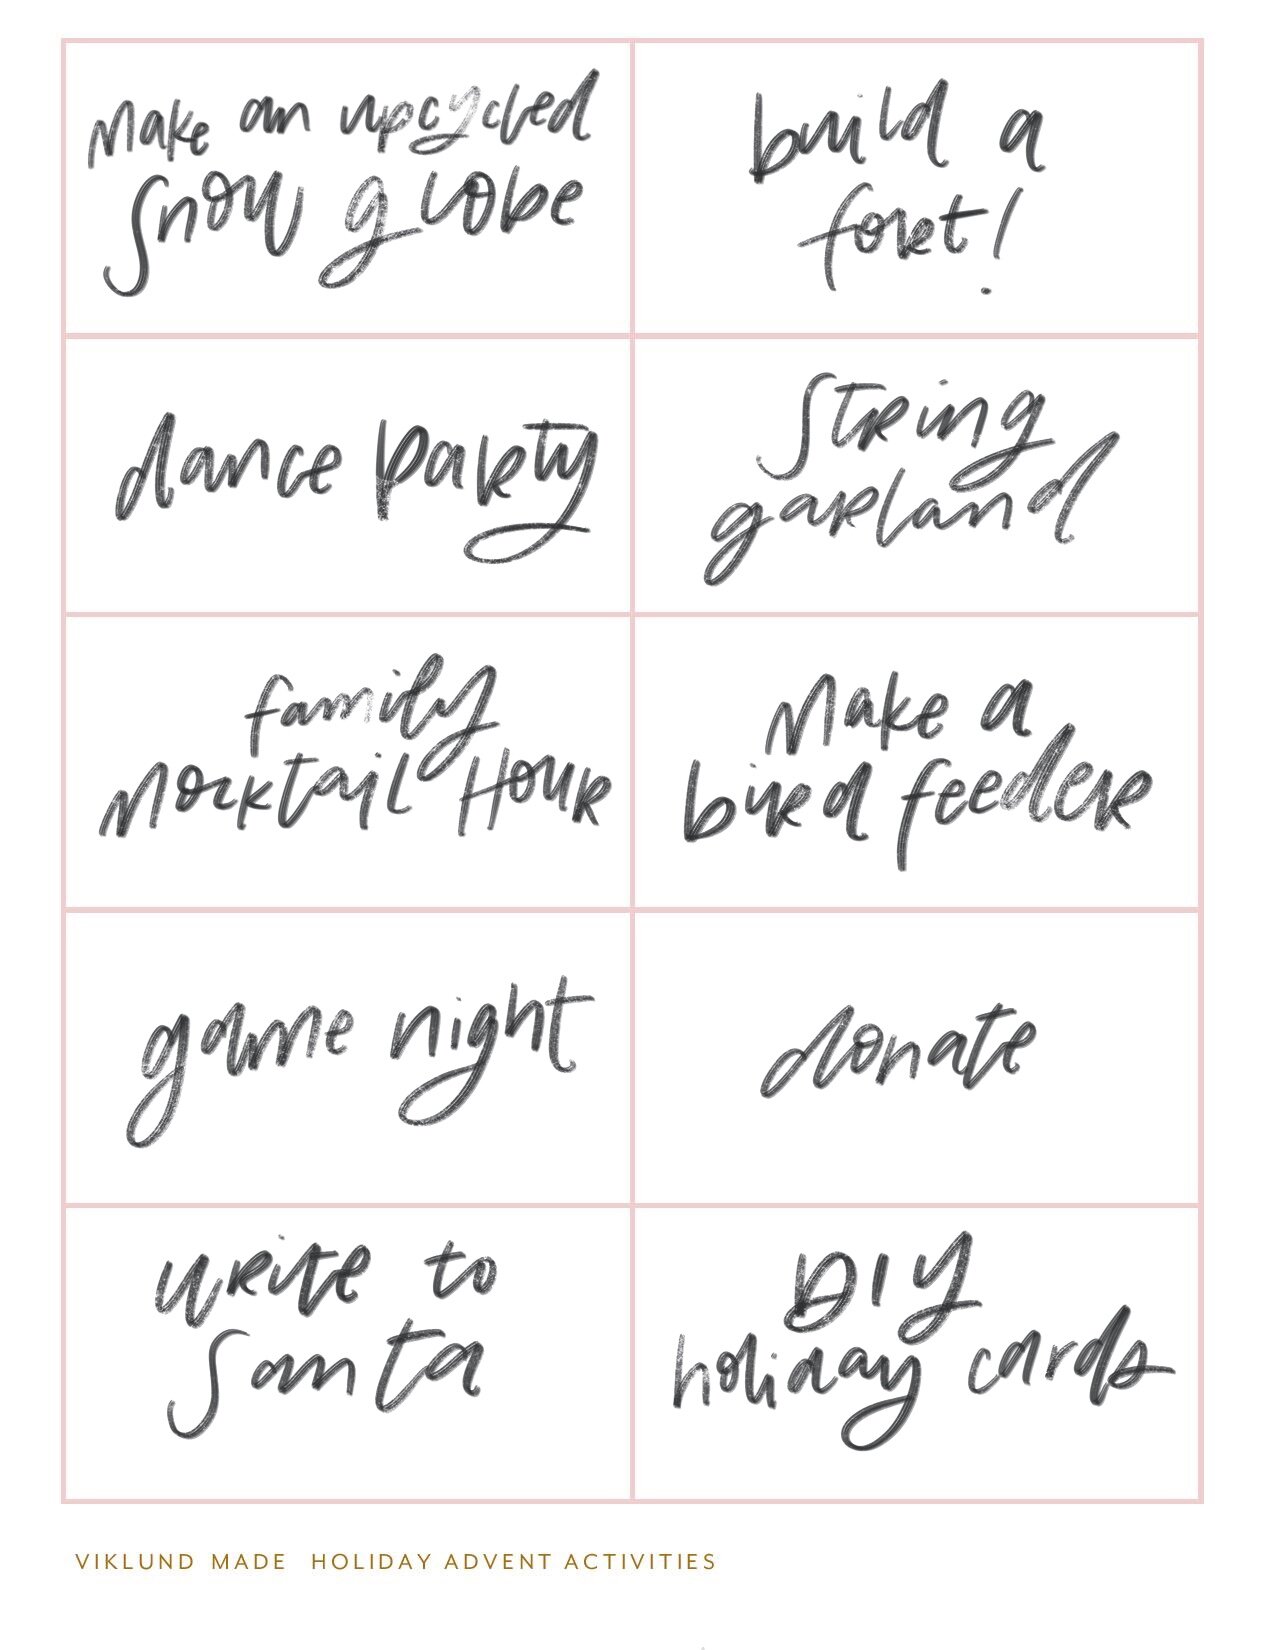 Make an upcycled
snow globe
build a
fort!
dance party
string
garland
family
Mocktail Hour
Make a
bird feeder
game night
donate
write to
Santa
DIY
holiday cards
VIKLUND MADE HOLIDAY ADVENT ACTIVITIES